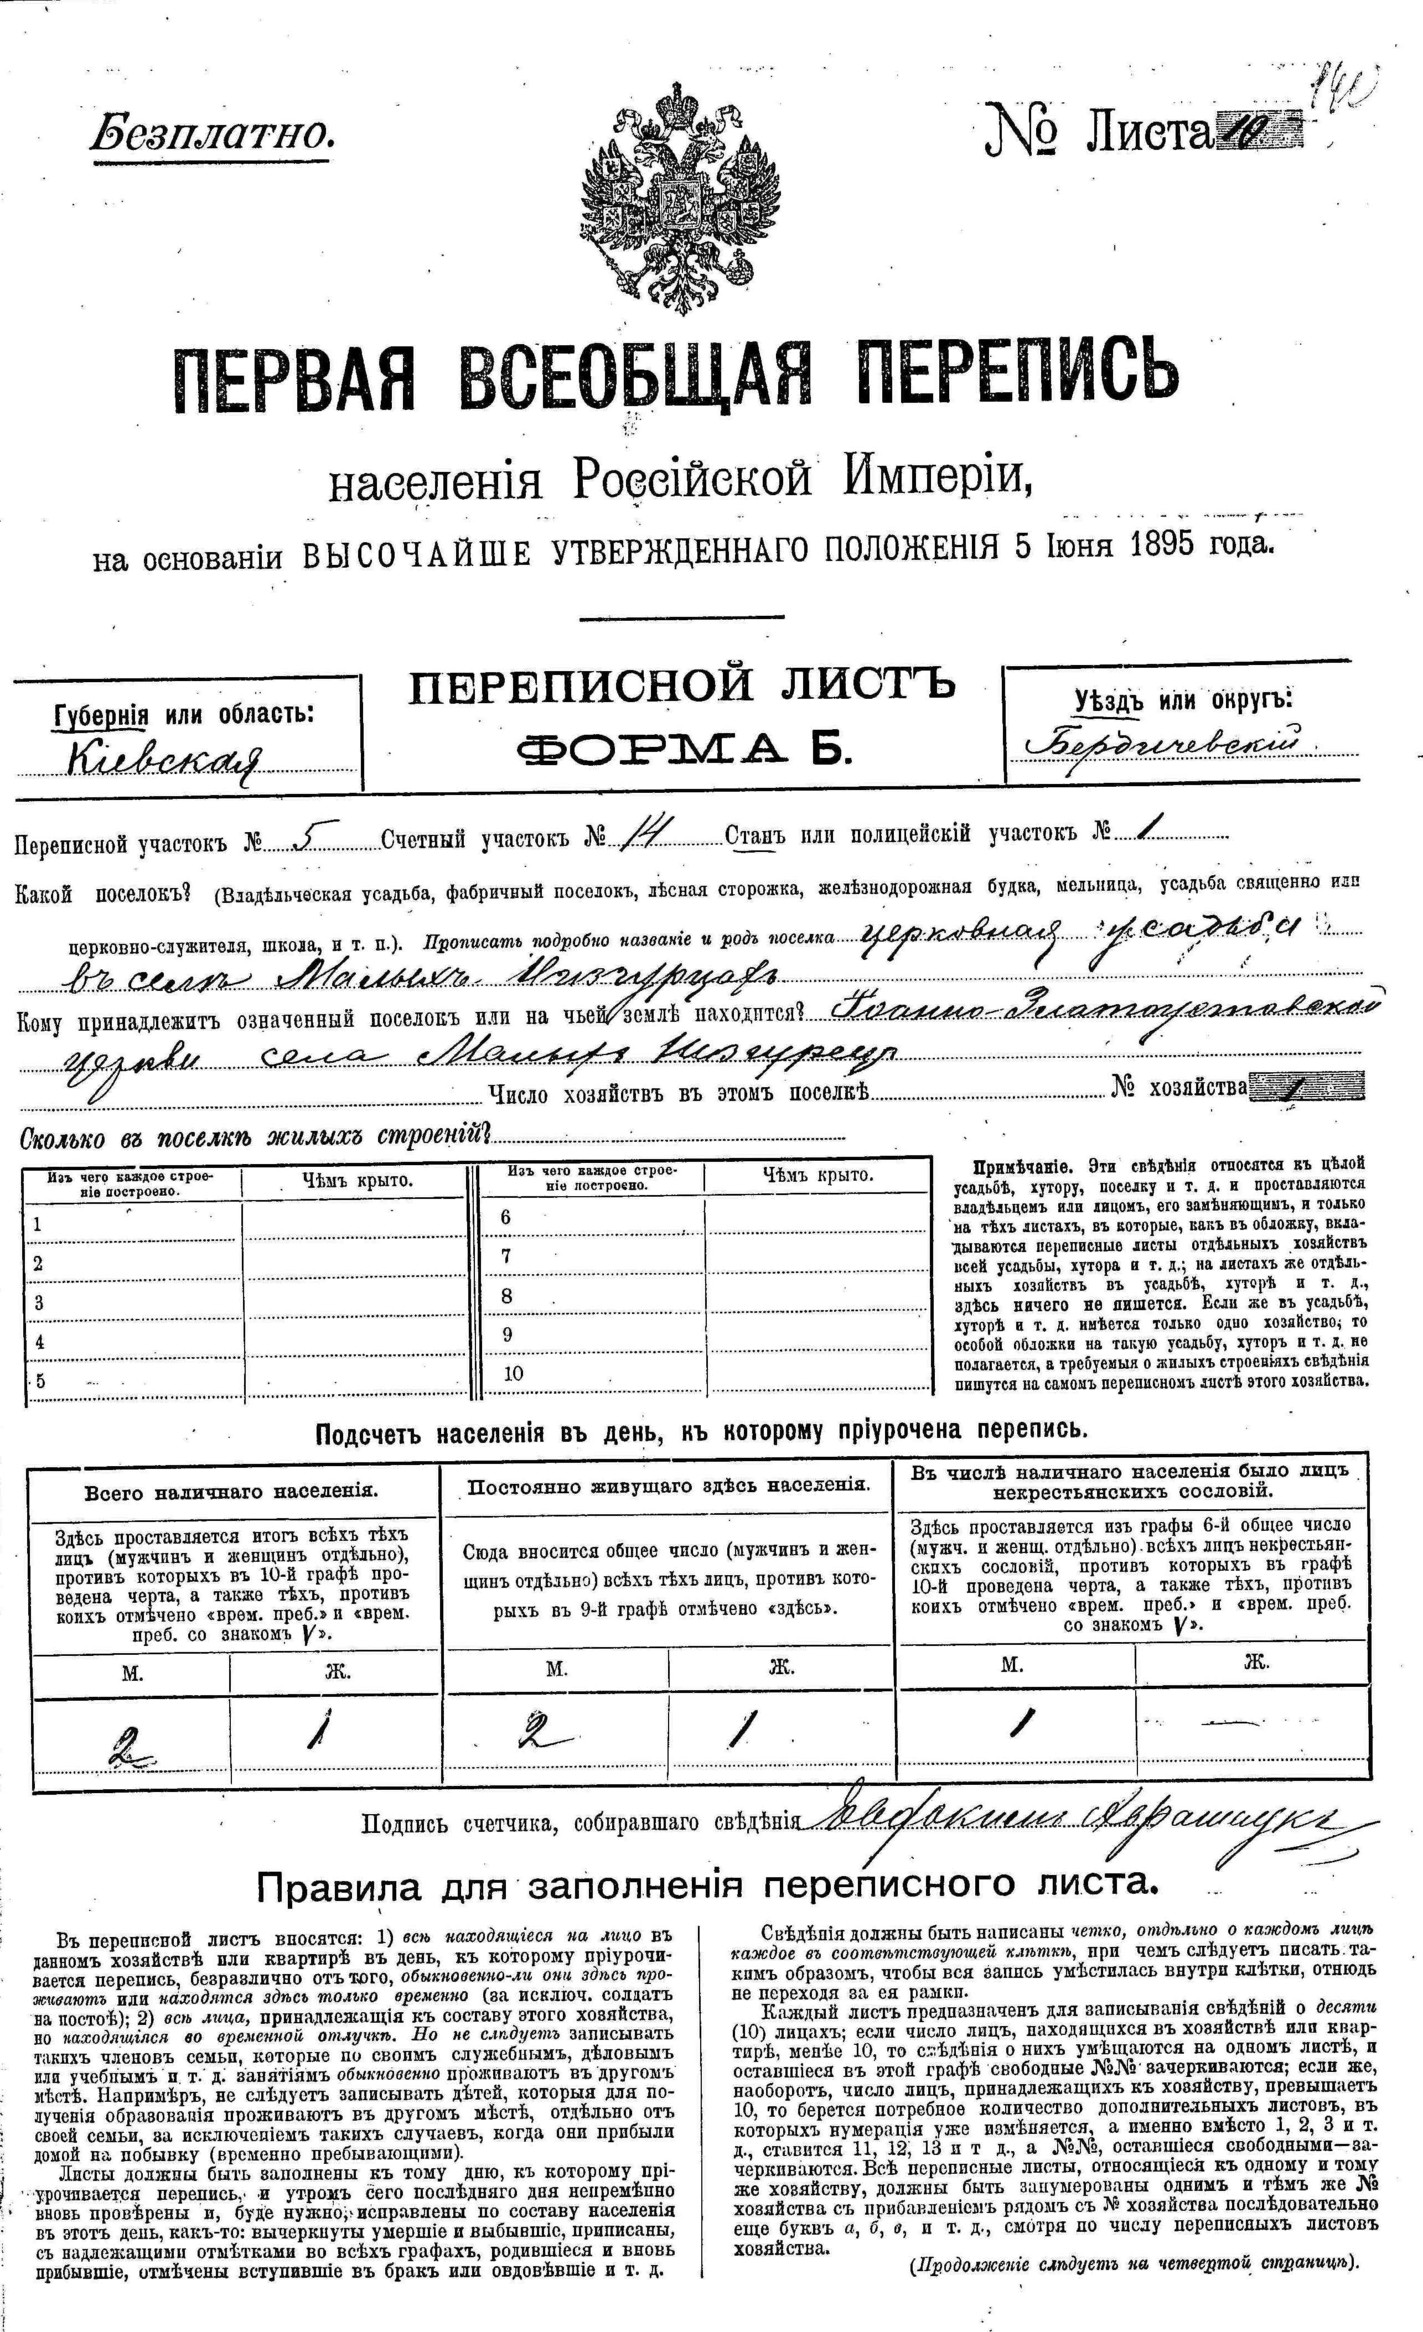 Безплатно.
№ Листа 10
ПЕРВАЯ ВСЕОБЩАЯ ПЕРЕПИСЬ
населенія Россійской Имперіи,
на основаніи ВЫСОЧАЙШЕ УТВЕРЖДЕННАГО ПОЛОЖЕНІЯ 5 Іюня 1895 года.
ПЕРЕПИСНОЙ ЛИСТЪ
ФОРМА Б.
Губернія или область:
Кіевская
Уѣздъ или округъ:
Бердичевскій
Переписной участокъ № 5 Счетный участокъ № 14 Станъ или полицейскій участокъ № 1
Какой поселокъ? (Владѣльческая усадьба, фабричный поселокъ, лѣсная сторожка, желѣзнодорожная будка, мельница, усадьба священно или
церковно-служителя, школа, и т. п.). Прописать подробно названіе и родъ поселка церковная усадьба
въ селѣ Малыхъ Низгурцахъ
Кому принадлежитъ означенный поселокъ или на чьей землѣ находится? Іоанно-Златоустовской
церкви села Малыхъ Низгурецъ
Число хозяйствъ въ этомъ поселкѣ № хозяйства 1
Сколько въ поселкѣ жилыхъ строеній?
Изъ чего каждое строе-
ніе построено.
Чѣмъ крыто.
Изъ чего каждое строе-
ніе построено.
Чѣмъ крыто.
1
2
3
4
5
6
7
8
9
10
Примѣчаніе. Эти свѣдѣнія относятся къ цѣлой
усадьбѣ, хутору, поселку и т. д. и проставляются
владѣльцемъ или лицомъ, его замѣняющимъ, и только
на тѣхъ листахъ, въ которые, какъ въ обложку, вкла-
дываются переписные листы отдѣльныхъ хозяйствъ
всей усадьбы, хутора и т. д.; на листахъ же отдѣль-
ныхъ хозяйствъ въ усадьбѣ, хуторѣ и т. д.,
здѣсь ничего не пишется. Если же въ усадьбѣ,
хуторѣ и т. д. имѣется только одно хозяйство, то
особой обложки на такую усадьбу, хуторъ и т. д. не
полагается, а требуемыя о жилыхъ строеніяхъ свѣдѣнія
пишутся на самомъ переписномъ листѣ этого хозяйства.
Подсчетъ населенія въ день, къ которому пріурочена перепись.
Всего наличнаго населенія.
Здѣсь проставляется итогъ всѣхъ тѣхъ
лицъ (мужчинъ и женщинъ отдѣльно),
противъ которыхъ въ 10-й графѣ про-
ведена черта, а также тѣхъ, противъ
коихъ отмѣчено «врем. преб.» и «врем.
преб. со знакомъ V».
М. Ж.
2 1
Постоянно живущаго здѣсь населенія.
Сюда вносится общее число (мужчинъ и жен-
щинъ отдѣльно) всѣхъ тѣхъ лицъ, противъ кото-
рыхъ въ 9-й графѣ отмѣчено «здѣсь».
М. Ж.
2 1
Въ числѣ наличнаго населенія было лицъ
некрестьянскихъ сословій.
Здѣсь проставляется изъ графы 6-й общее число
(мужч. и женщ. отдѣльно) всѣхъ лицъ некрестьян-
скихъ сословій, противъ которыхъ въ графѣ
10-й проведена черта, а также тѣхъ, противъ
коихъ отмѣчено «врем. преб.» и «врем. преб.
со знакомъ V».
М. Ж.
1 —
Подпись счетчика, собиравшаго свѣдѣнія Евдокимъ
Правила для заполненія переписного листа.
Въ переписной листъ вносятся: 1) всѣ находящіеся на лицо въ
данномъ хозяйствѣ или квартирѣ въ день, къ которому пріурочи-
вается перепись, безразлично отъ того, обыкновенно-ли они здѣсь про-
живаютъ или находятся здѣсь только временно (за исключ. солдатъ
на постоѣ); 2) всѣ лица, принадлежащія къ составу этого хозяйства,
но находящіяся во временной отлучкѣ. Но не слѣдуетъ записывать
такихъ членовъ семьи, которые по своимъ служебнымъ, дѣловымъ
или учебнымъ и т. д. занятіямъ обыкновенно проживаютъ въ другомъ
мѣстѣ. Напримѣръ, не слѣдуетъ записывать дѣтей, которыя для по-
лученія образованія проживаютъ въ другомъ мѣстѣ, отдѣльно отъ
своей семьи, за исключеніемъ такихъ случаевъ, когда они прибыли
домой на побывку (временно пребывающими).
Листы должны быть заполнены къ тому дню, къ которому прі-
урочивается перепись, и утромъ сего послѣдняго дня непремѣнно
вновь провѣрены и, буде нужно, исправлены по составу населенія
въ этотъ день, какъ-то: вычеркнуты умершіе и выбывшіе, приписаны,
съ надлежащими отмѣтками во всѣхъ графахъ, родившіеся и вновь
прибывшіе, отмѣчены вступившіе въ бракъ или овдовѣвшіе и т. д.
Свѣдѣнія должны быть написаны четко, отдѣльно о каждомъ лицѣ
каждое въ соотвѣтствующей клѣткѣ, при чемъ слѣдуетъ писать та-
кимъ образомъ, чтобы вся запись умѣстилась внутри клѣтки, отнюдь
не переходя за ея рамки.
Каждый листъ предназначенъ для записыванія свѣдѣній о десяти
(10) лицахъ; если число лицъ, находящихся въ хозяйствѣ или квар-
тирѣ, менѣе 10, то свѣдѣнія о нихъ умѣщаются на одномъ листѣ, и
оставшіеся въ этой графѣ свободные №№ зачеркиваются; если же,
наоборотъ, число лицъ, принадлежащихъ къ хозяйству, превышаетъ
10, то берется потребное количество дополнительныхъ листовъ, въ
которыхъ нумерація уже измѣняется, а именно вмѣсто 1, 2, 3 и т.
д., ставится 11, 12, 13 и т д., а №№, оставшіеся свободными—за-
черкиваются. Всѣ переписные листы, относящіеся къ одному и тому
же хозяйству, должны быть занумерованы однимъ и тѣмъ же №
хозяйства съ прибавленіемъ рядомъ съ № хозяйства послѣдовательно
еще буквъ а, б, в, и т. д., смотря по числу переписныхъ листовъ
хозяйства.
(Продолженіе слѣдуетъ на четвертой страницѣ).